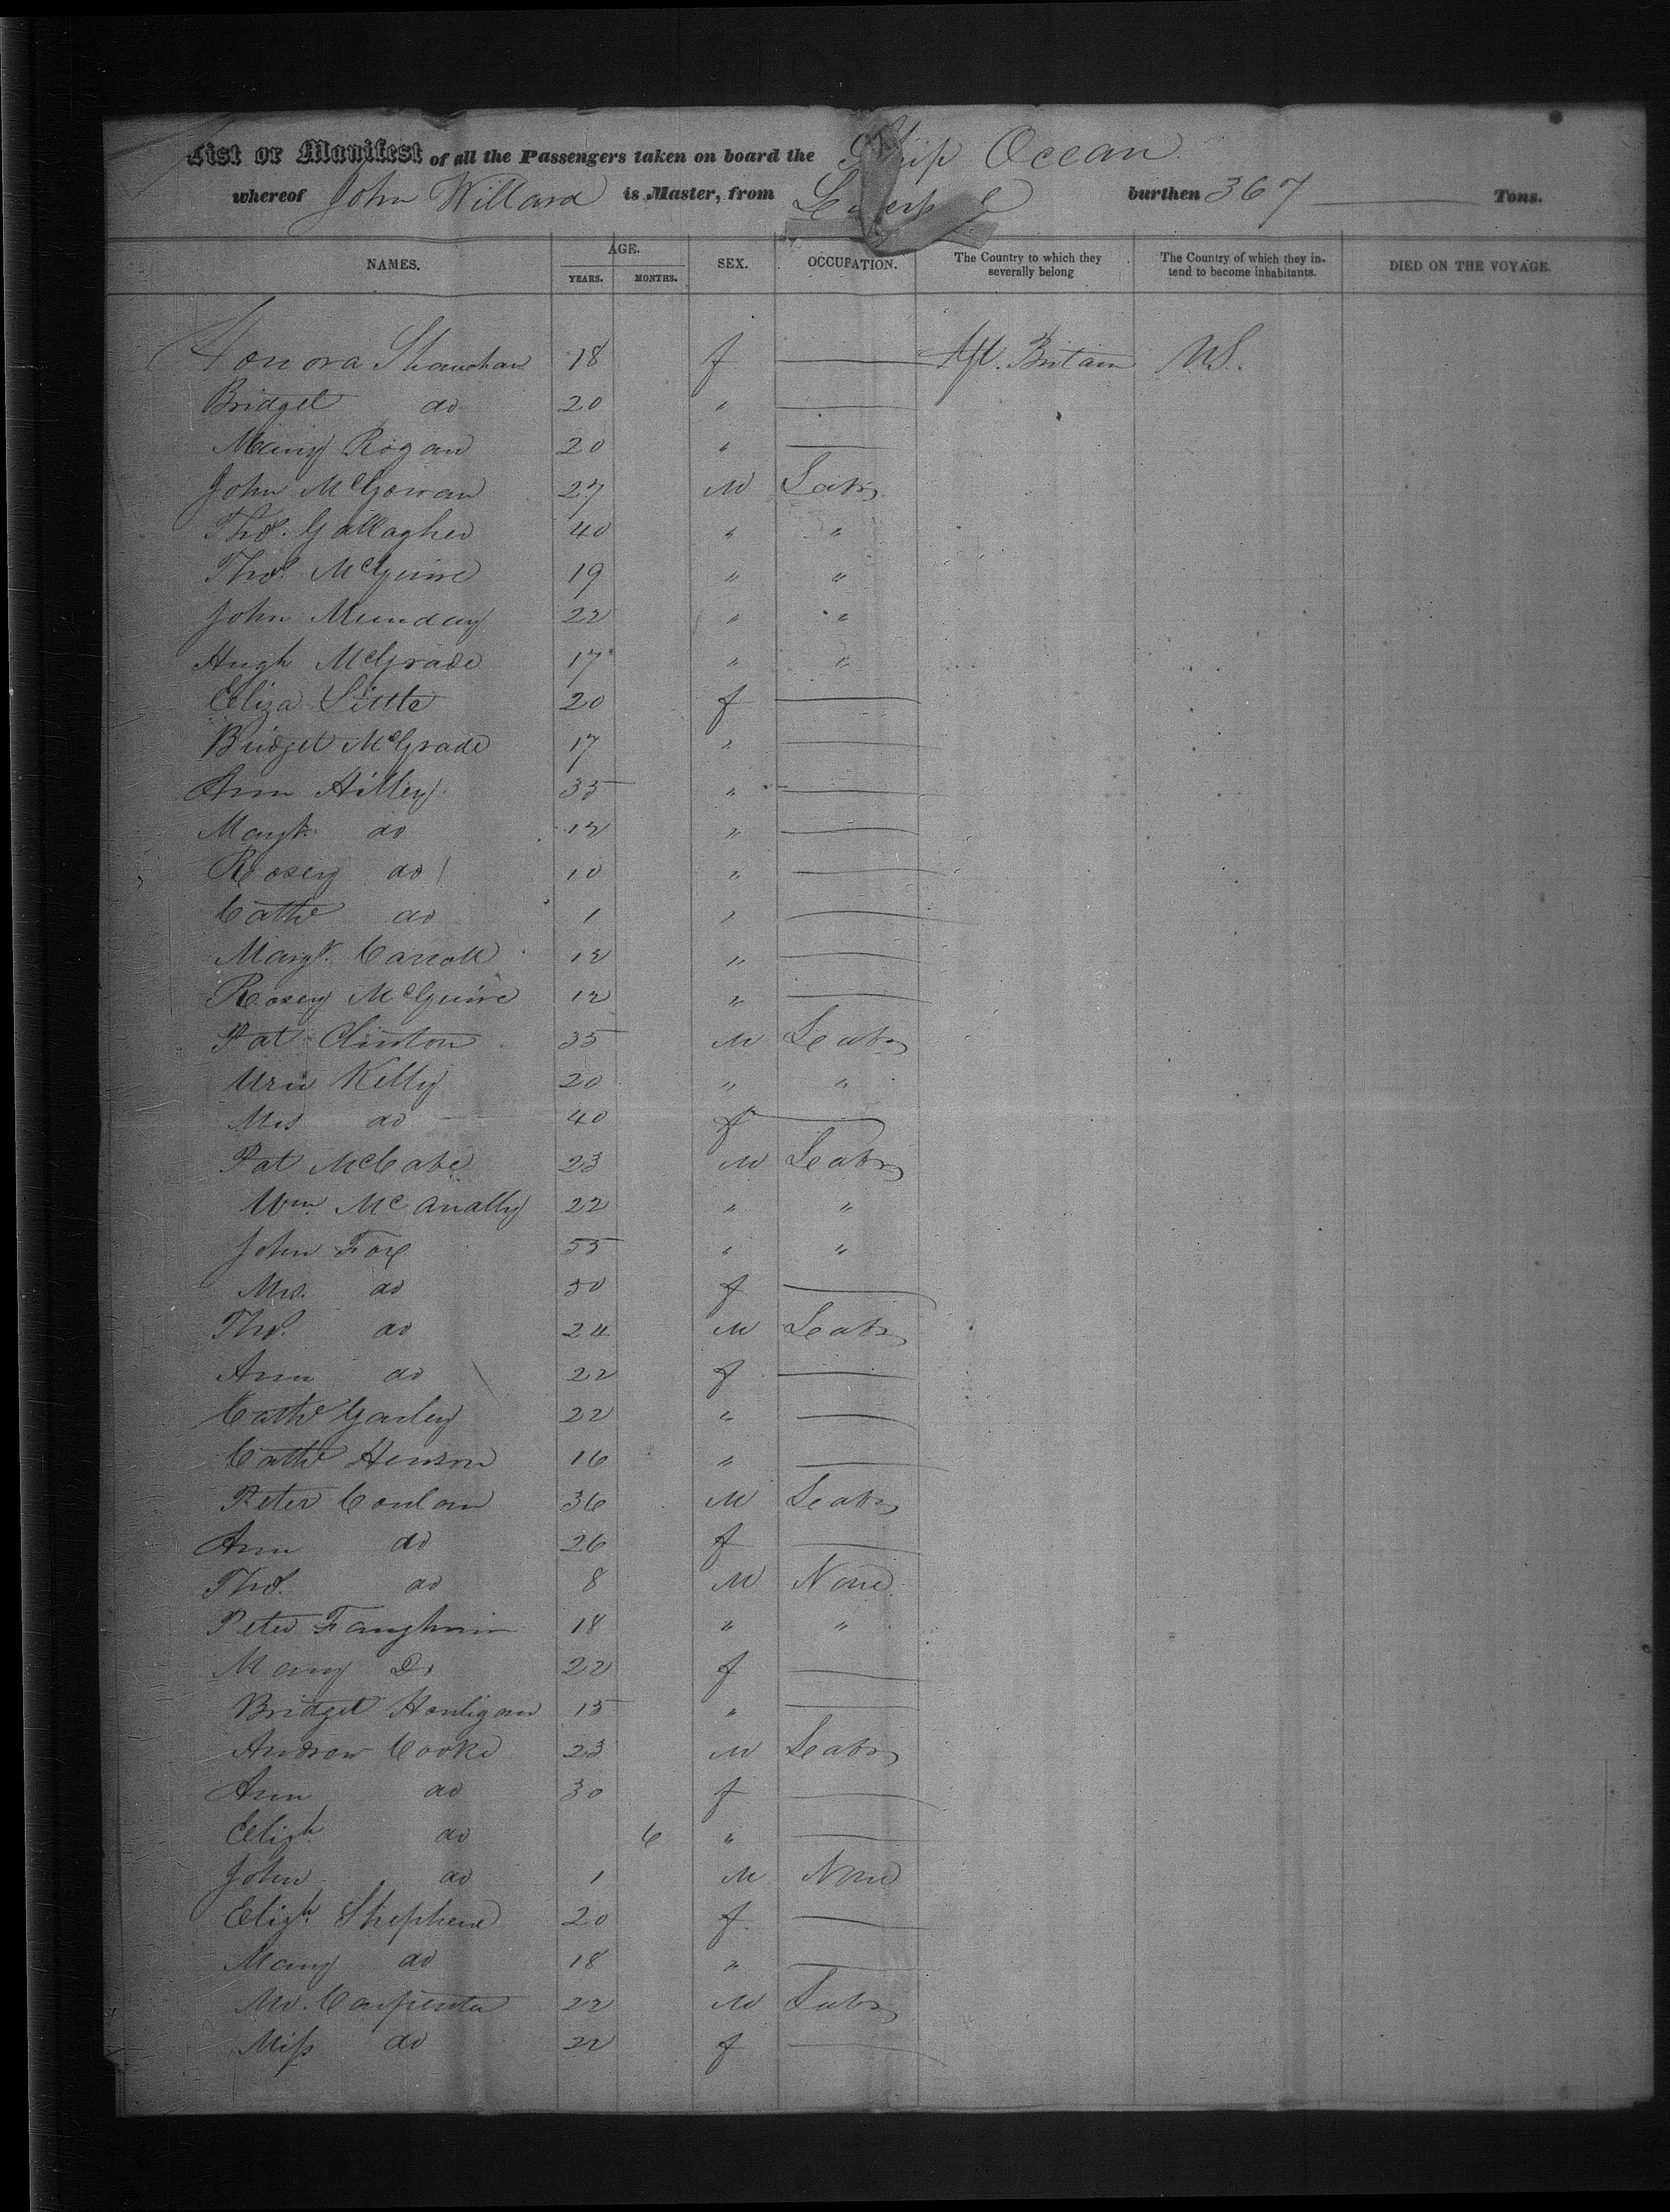 List or Manifest of all the Passengers taken on board the Ship Ocean
whereof John Willard is Master, from Liverpool burthen 367 Tons.
NAMES. AGE. YEARS. MONTHS. SEX. OCCUPATION. The Country to which they severally belong The Country of which they intend to become inhabitants. DIED ON THE VOYAGE.
Honora Shanahan 18 f — Gt. Britain U.S.
Bridget do 20 " —
Mary Rogan 20 " —
John McGowan 27 M Labr
Thos. Gallagher 40 " "
Thos. McGuire 19 " "
John Munday 22 " "
Hugh McGrade 17 " "
Eliza Little 20 f —
Bridget McGrade 17 " —
Ann Hilley 35 " —
Margt. do 12 " —
Rosey do 10 " —
Cathe do 1 " —
Margt. Carroll 12 " —
Rosey McGuire 12 " —
Pat Clinton 35 M Labr
Kelly 20 " "
Mrs do 40 f —
Pat McCabe 23 M Labr
Wm. McAnally 22 " "
John Fox 55 " "
Mrs. do 50 f —
Thos. do 24 M Labr
Ann do 22 f —
Cathe Garley 22 " —
Cathe Henson 16 " —
Peter Conlan 36 M Labr
Ann do 26 f —
Thos. do 8 M None
Peter 18 " "
Mary Do 22 f —
Bridget Honligan 15 " —
Andrew Cooke 23 M Labr
Ann do 30 f —
Elizh do 6 " —
John do 1 M None
Elizh. Shephene 20 f —
Mary do 18 " —
Mr. Carpenter 22 M Labr
Miss do 22 f —